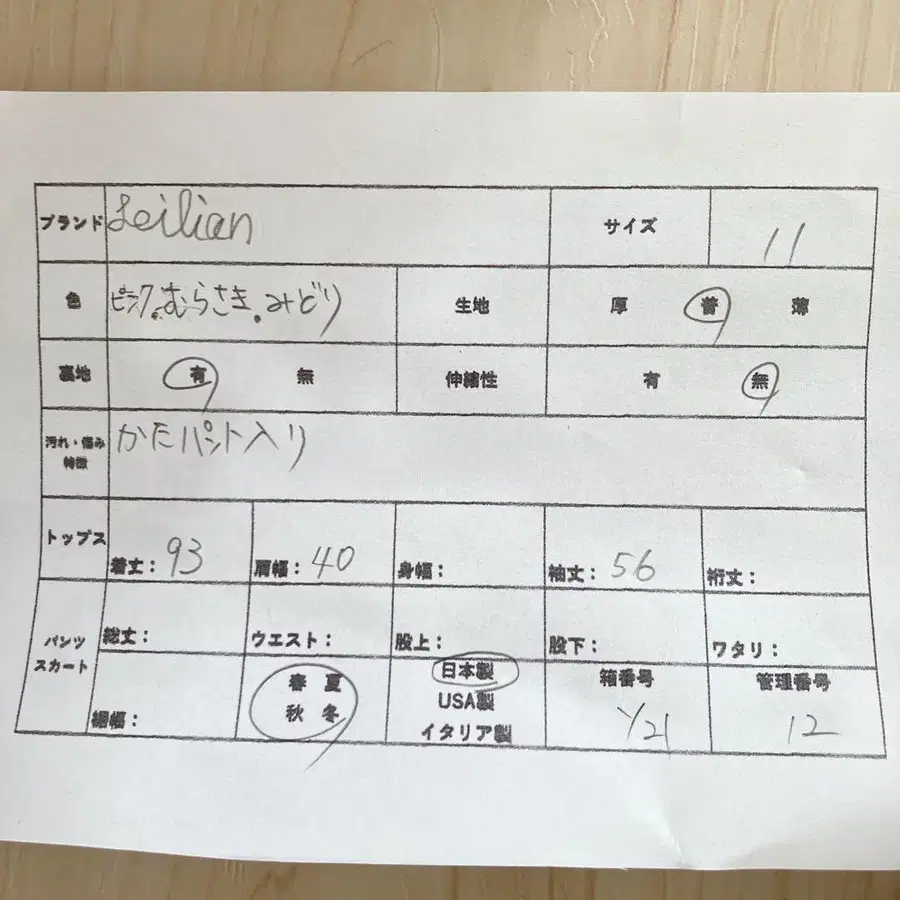 ブランド Leilian サイズ 11
色 ピンク.むらさき.みどり 生地 厚 普 薄
裏地 有 無 伸縮性 有 無
汚れ・傷み 特徴 かたパット入り
トップス 着丈：93 肩幅：40 身幅： 袖丈：56 裄丈：
パンツ スカート 総丈： ウエスト： 股上： 股下： ワタリ：
裾幅： 春 夏 秋 冬 日本製 USA製 イタリア製 箱番号 1/21 管理番号 12